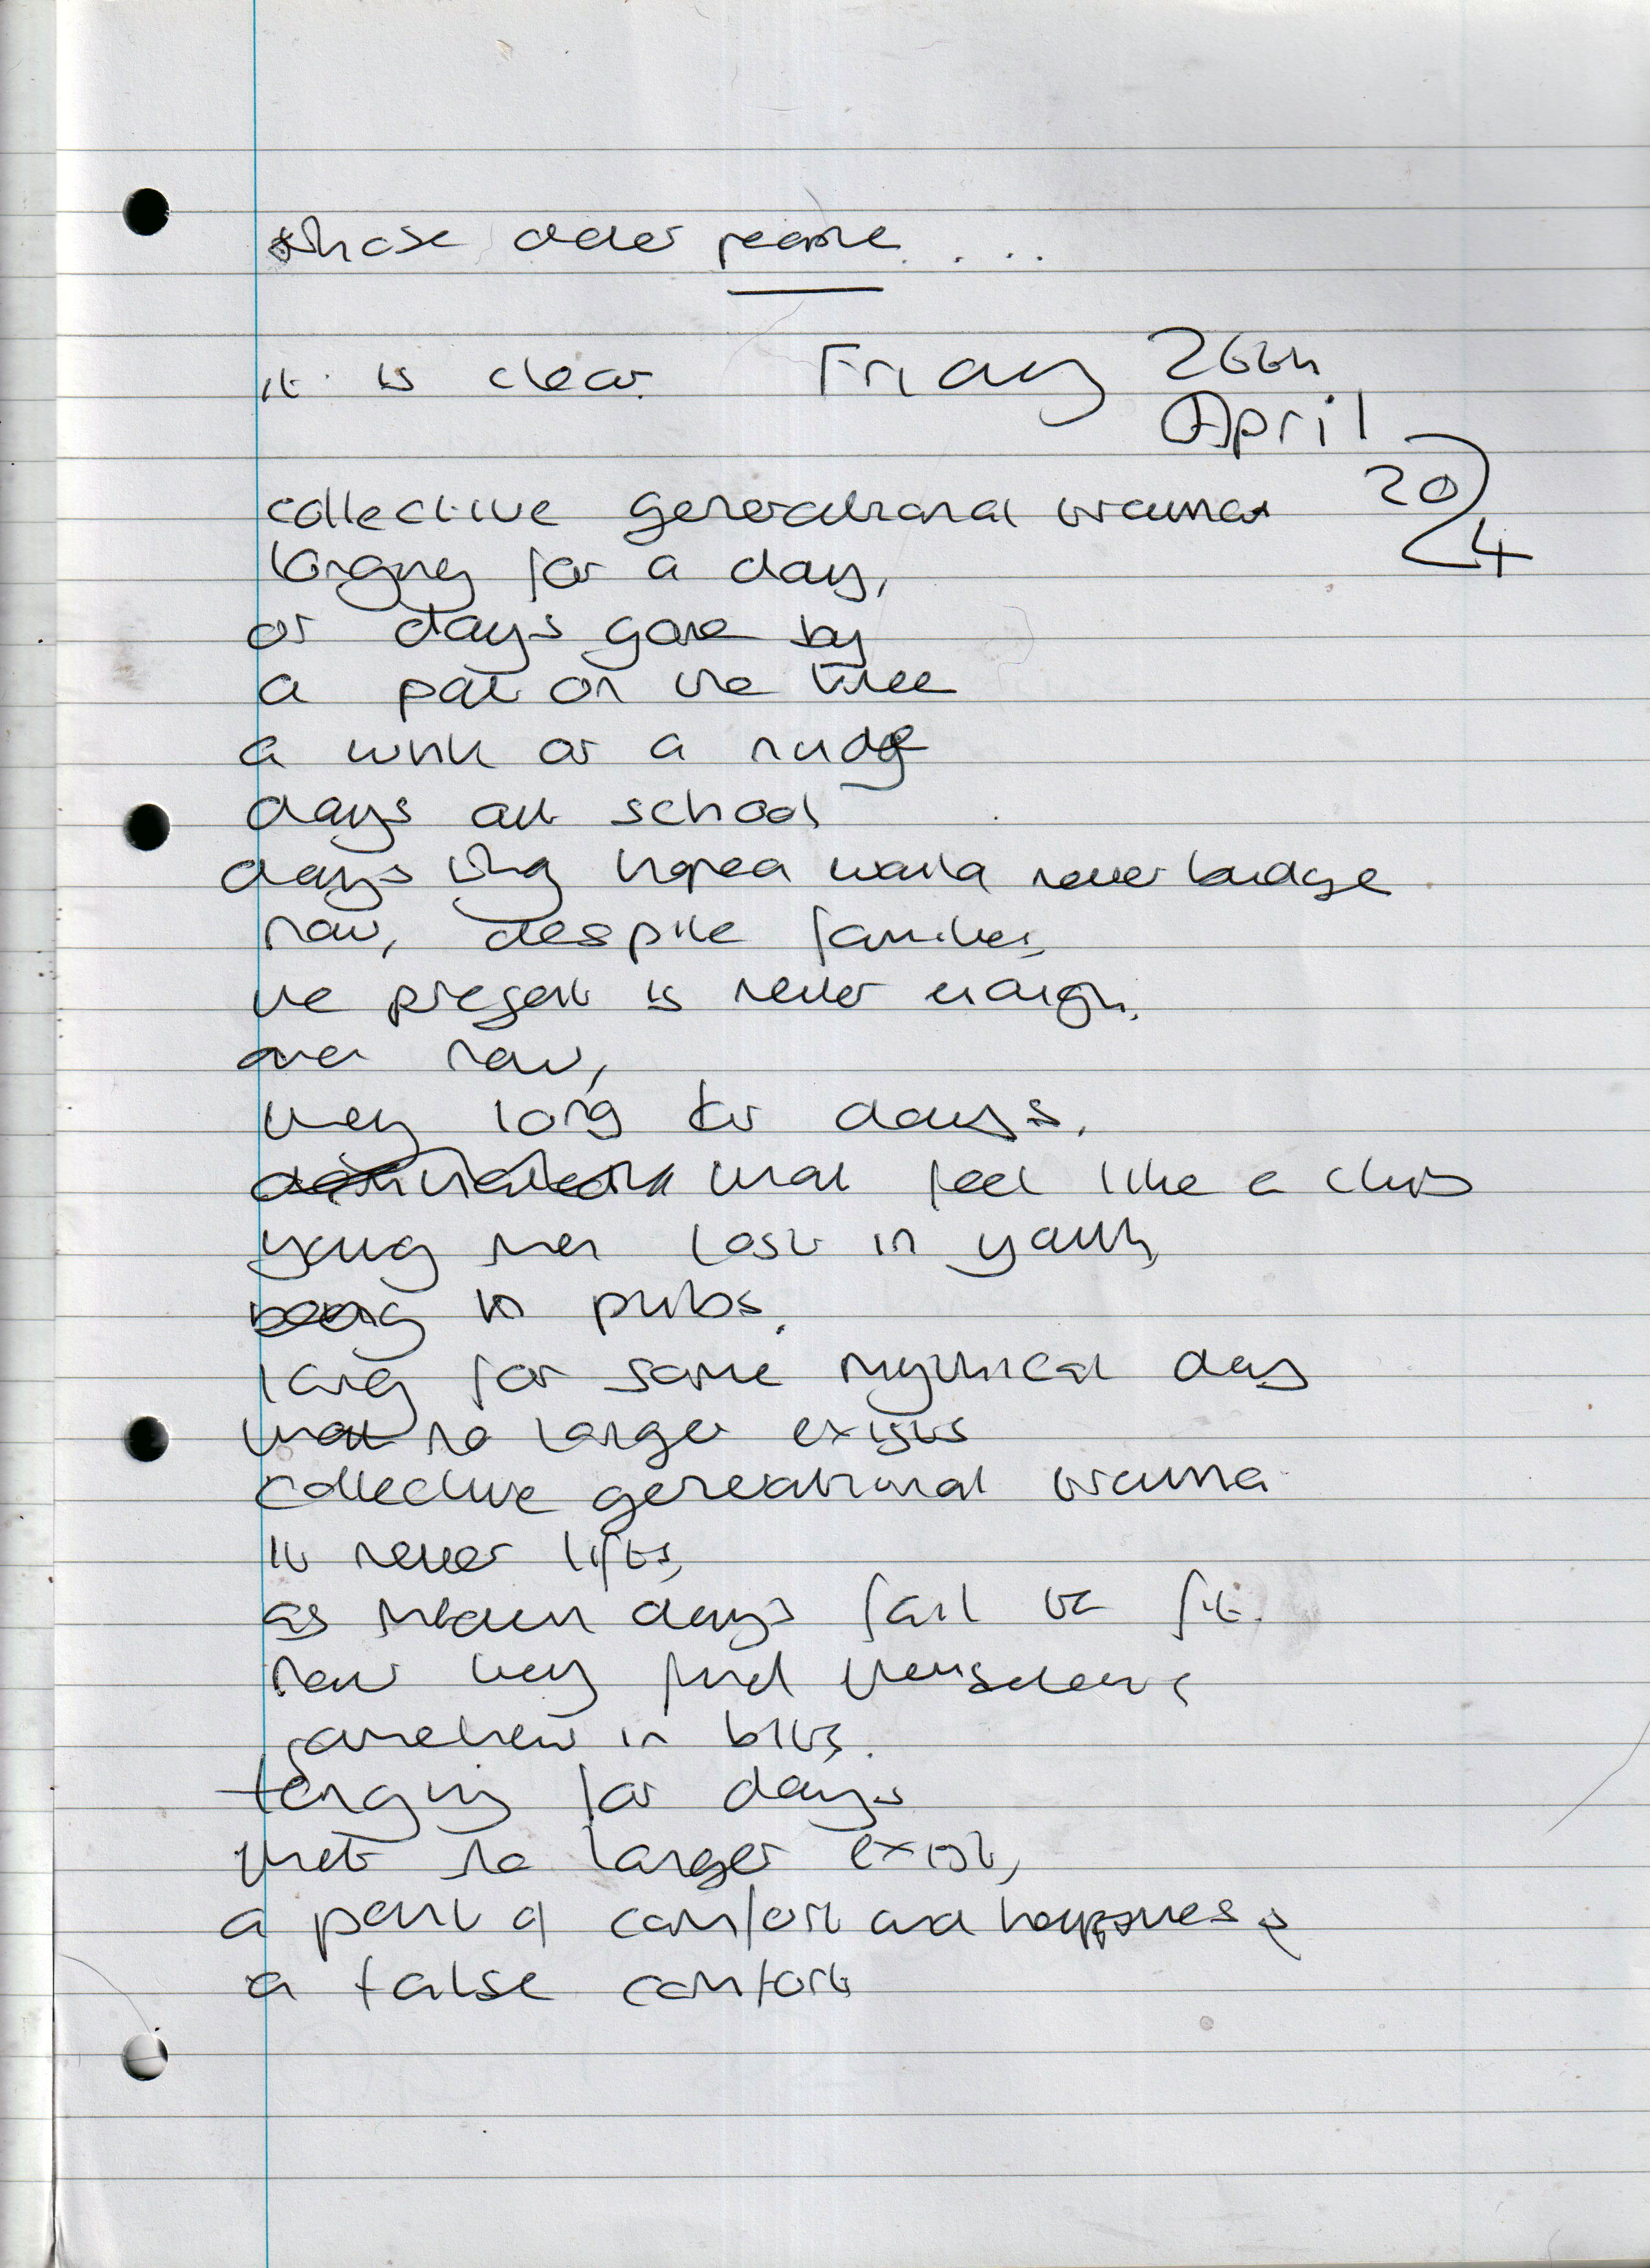 those older people. . . .
it is clear. Friday 26th
April
2024
collective generational trauma
longing for a day,
or days gone by
a pat on the
a wink or a nudge
days at school
days they hoped would never budge
now, despite families,
the present is never enough.
even now,
they long for days.
that feel like a club
young men lost in youth,
in pubs.
long for some mythical day
that no longer exists
collective generational trauma
it never lifts,
as modern days fail to fit.
now they find themselves
somehow in bits.
longing for days
that no longer exist,
a point of comfort and happiness
a false comfort